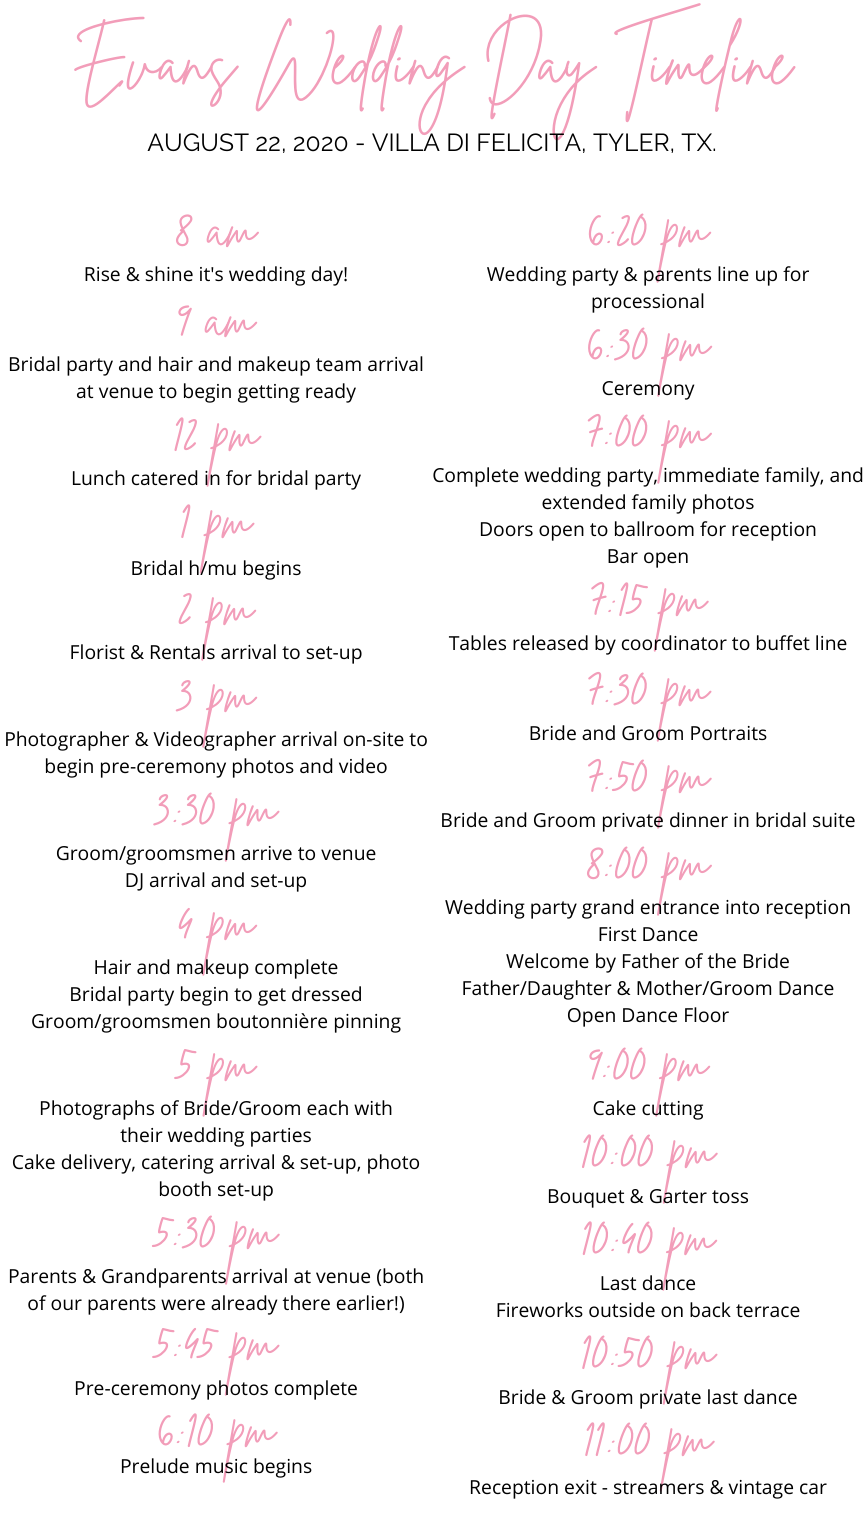 Evans Wedding Day Timeline
AUGUST 22, 2020 - VILLA DI FELICITA, TYLER, TX.
8 am
Rise & shine it's wedding day!
9 am
Bridal party and hair and makeup team arrival
at venue to begin getting ready
12 pm
Lunch catered in for bridal party
1 pm
Bridal h/mu begins
2 pm
Florist & Rentals arrival to set-up
3 pm
Photographer & Videographer arrival on-site to
begin pre-ceremony photos and video
3:30 pm
Groom/groomsmen arrive to venue
DJ arrival and set-up
4 pm
Hair and makeup complete
Bridal party begin to get dressed
Groom/groomsmen boutonnière pinning
5 pm
Photographs of Bride/Groom each with
their wedding parties
Cake delivery, catering arrival & set-up, photo
booth set-up
5:30 pm
Parents & Grandparents arrival at venue (both
of our parents were already there earlier!)
5:45 pm
Pre-ceremony photos complete
6:10 pm
Prelude music begins
6:20 pm
Wedding party & parents line up for
processional
6:30 pm
Ceremony
7:00 pm
Complete wedding party, immediate family, and
extended family photos
Doors open to ballroom for reception
Bar open
7:15 pm
Tables released by coordinator to buffet line
7:30 pm
Bride and Groom Portraits
7:50 pm
Bride and Groom private dinner in bridal suite
8:00 pm
Wedding party grand entrance into reception
First Dance
Welcome by Father of the Bride
Father/Daughter & Mother/Groom Dance
Open Dance Floor
9:00 pm
Cake cutting
10:00 pm
Bouquet & Garter toss
10:40 pm
Last dance
Fireworks outside on back terrace
10:50 pm
Bride & Groom private last dance
11:00 pm
Reception exit - streamers & vintage car